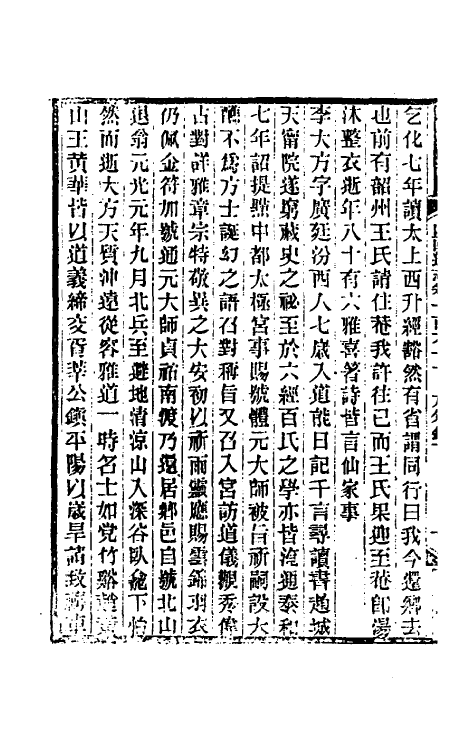 乞化七年讀太上西升經豁然有省謂同行曰我今還鄉去
也前有韶州王氏請住菴我許往已而王氏果迎至菴即湯
沐整衣逝年八十有六雅喜著詩皆言仙家事
李大方字廣延汾西人七歲入道能日記千言尋讀書通城
天甯院遂窮藏史之祕至於六經百氏之學亦皆淹通泰和
七年詔提點中都太極宮事賜號體元大師被旨祈嗣設大
醮不爲方士誕幻之語召對稱旨又召入宮訪道儀觀秀偉
占對詳雅章宗特敬異之大安初以祈雨靈應賜雲錦羽衣
仍佩金符加號通元大師貞祐南渡乃還居鄉邑自號北山
退翁元光元年九月北兵至避地清涼山入深谷臥絶下怡
然而逝大方天質沖遠從容雅道一時名士如党竹谿趙
山王黃華皆以道義締交胥莘公鎮平陽以歲旱請致